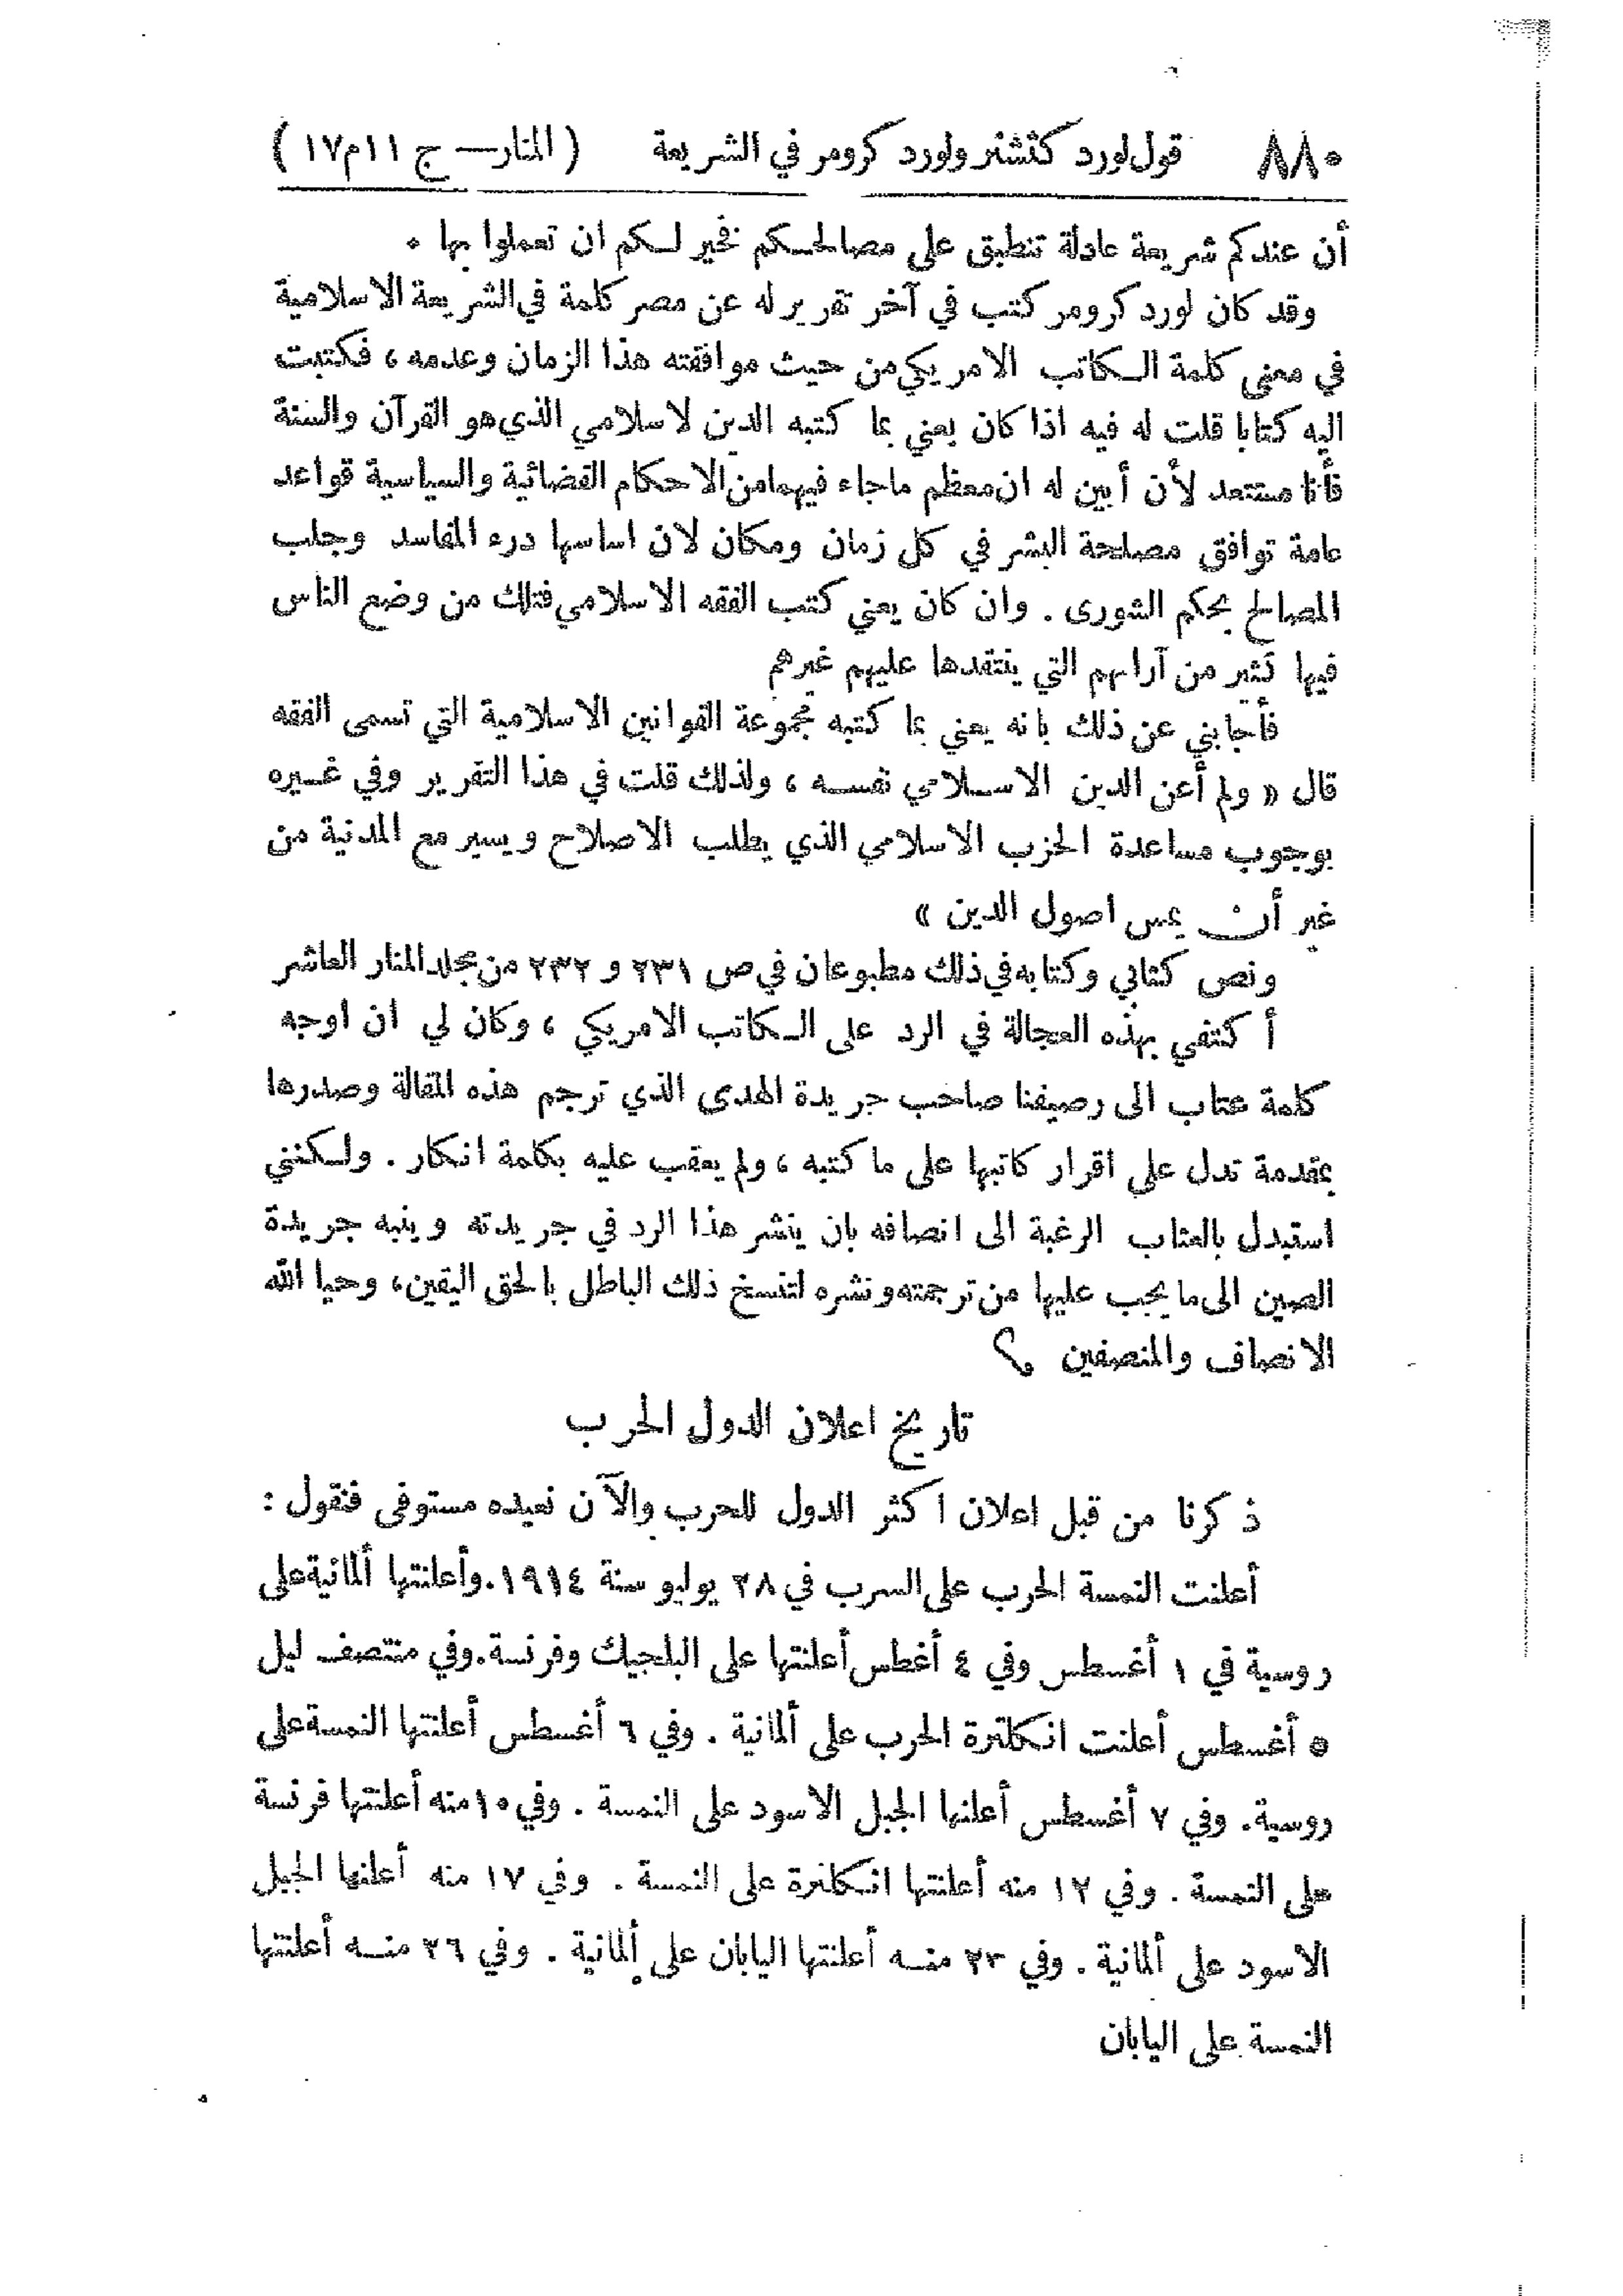 ٨٨٠ قول لورد كتشنر ولورد كرومر في الشريعة (المنار — ج ١١ م ١٧)
أن عندكم شريعة عادلة تنطبق على مصالحكم فخير لكم ان تعملوا بها .
وقد كان لورد كرومر كتب في آخر تقرير له عن مصر كلمة في الشريعة الاسلامية
في معنى كلمة الكاتب الامريكي من حيث موافقته هذا الزمان وعدمه ، فكتبت
اليه كتابا قلت له فيه اذا كان يعني بما كتبه الدين لاسلامي الذي هو القرآن والسنة
فأنا مستعد لأن أبين له ان معظم ماجاء فيهما من الاحكام القضائية والسياسية قواعد
عامة توافق مصلحة البشر في كل زمان ومكان لان اساسها درء المفاسد وجلب
المصالح بحكم الشورى . وان كان يعني كتب الفقه الاسلامي فتلك من وضع الناس
فيها كثير من آرائهم التي ينتقدها عليهم غيرهم
فأجابني عن ذلك بانه يعني بما كتبه مجموعة القوانين الاسلامية التي تسمى الفقه
قال « ولم أعن الدين الاسلامي نفسه ، ولذلك قلت في هذا التقرير وفي غيره
بوجوب مساعدة الحزب الاسلامي الذي يطلب الاصلاح ويسير مع المدنية من
غير أن يمس اصول الدين »
ونص كتابي وكتابه في ذلك مطبوعان في ص ٢٣١ و ٢٣٢ من مجلد المنار العاشر
أكتفي بهذه العجالة في الرد على الكاتب الامريكي ، وكان لي ان اوجه
كلمة عتاب الى رصيفنا صاحب جريدة الهدى الذي ترجم هذه المقالة وصدرها
بمقدمة تدل على اقرار كاتبها على ما كتبه ، ولم يعقب عليه بكلمة انكار . ولكنني
استبدل بالعتاب الرغبة الى انصافه بان ينشر هذا الرد في جريدته وينبه جريدة
الصين الى ما يجب عليها من ترجمته ونشره لتنسخ ذلك الباطل بالحق اليقين، وحيا الله
الانصاف والمنصفين
تاريخ اعلان الدول الحرب
ذكرنا من قبل اعلان اكثر الدول للحرب والآن نعيده مستوفى فنقول :
أعلنت النمسة الحرب على السرب في ٢٨ يوليو سنة ١٩١٤. وأعلنتها ألمانية على
روسية في ١ أغسطس وفي ٤ أغطس أعلنتها على البلجيك وفرنسة. وفي منتصف ليل
٥ أغسطس أعلنت انكلترة الحرب على ألمانية . وفي ٦ أغسطس أعلنتها النمسة على
روسية. وفي ٧ أغسطس أعلنها الجبل الاسود على النمسة . وفي ١٠ منه أعلنتها فرنسة
على النمسة . وفي ١٢ منه أعلنتها انكلترة على النمسة . وفي ١٧ منه أعلنها الجبل
الاسود على ألمانية . وفي ٢٣ منه أعلنتها اليابان على ألمانية . وفي ٢٦ منه أعلنتها
النمسة على اليابان